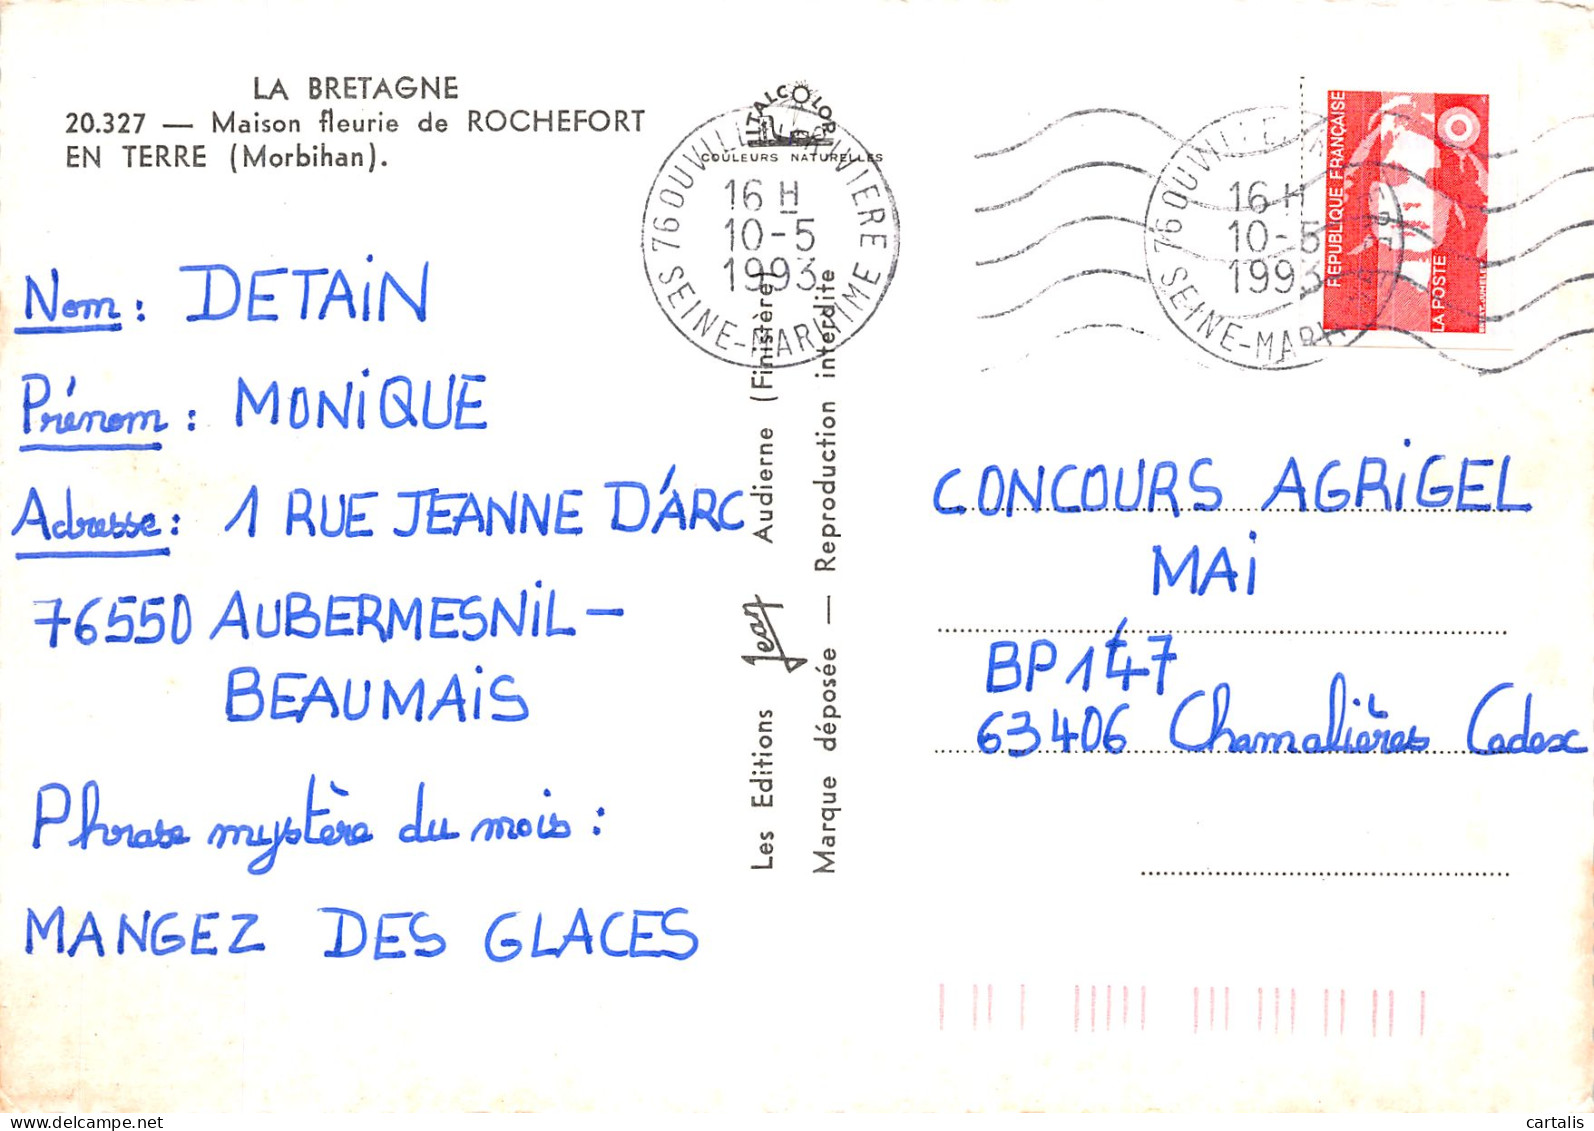 LA BRETAGNE
20.327 — Maison fleurie de ROCHEFORT
EN TERRE (Morbihan).
ITALCOLOR
COULEURS NATURELLES
16 H
10-5
1993
SEINE-MARITIME
16 H
10-5
1993
RÉPUBLIQUE FRANÇAISE
LA POSTE
Nom : DETAIN
Prénom : MONIQUE
Adresse : 1 RUE JEANNE D'ARC
76550 AUBERMESNIL-
BEAUMAIS
Phrase mystère du mois :
MANGEZ DES GLACES
Les Editions Jean Audierne (Finistère)
Marque déposée — Reproduction interdite
CONCOURS AGRIGEL
MAI
BP 147
63406 Chamalières Cedex
cartalis